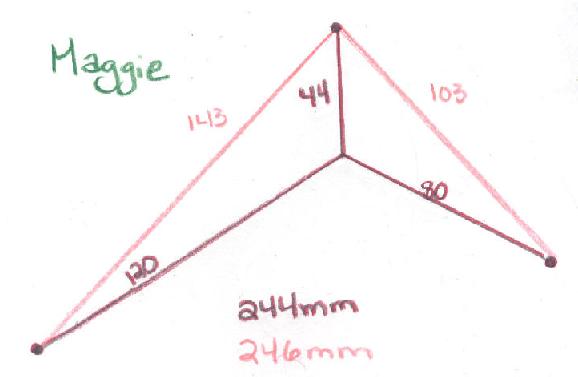 Maggie
44
143
103
80
120
244mm
246mm